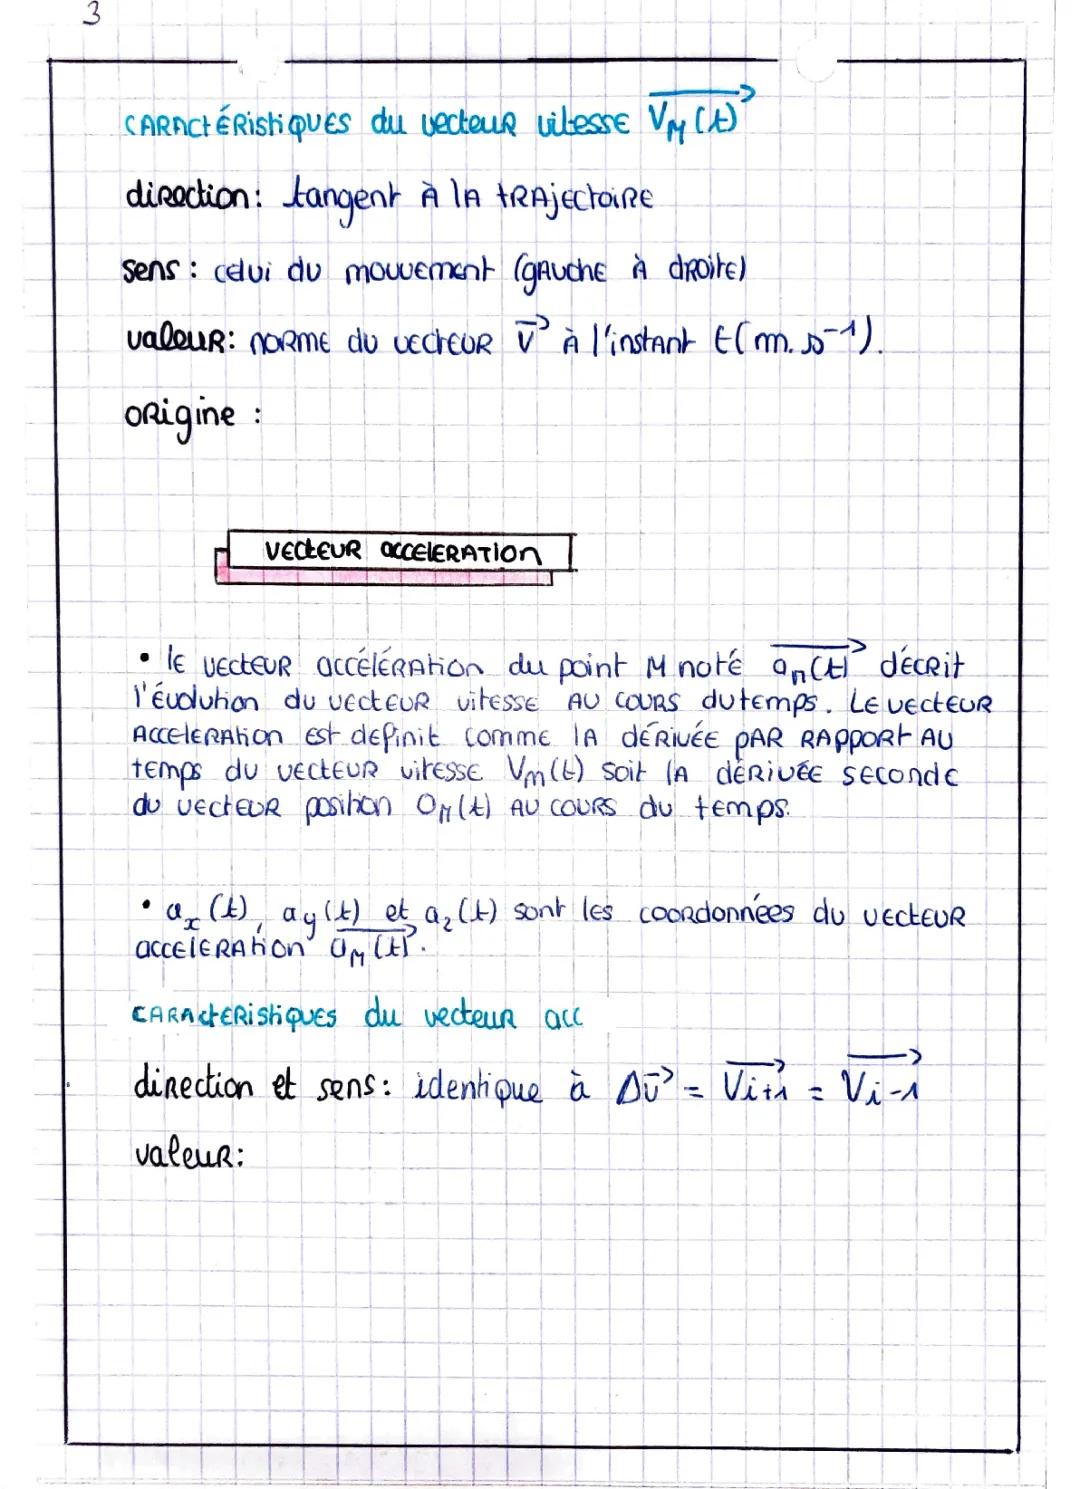 3
CARACtÉRistiQUES du vecteur vitesse V_M(t)
direction: tangent À lA tRAjectoiRE
sens : celui du mouvement (gAuchE À dRoitE)
valeur: noRME du vecteur v à l'instant t(m.s⁻¹).
oRigine :
VECTEUR ACCELERATION
• lE vectEUR accélération du point M noté a_n(t) décrit
l'évolution du vectEUR vitesse AU COURS dutemps. LE vectEUR
ACCELERAtion Est definit comme lA dÉRivÉE pAR RAPPORt AU
temps du vectEUR vitesse V_m(t) soit lA dÉRivÉE secondE
du vectEUR position O_M(t) AU COURS du temps.
• a_x(t), a_y(t) et a_z(t) sont les coordonnées du vectEUR
acceleRAtion a_M(t).
CARActERistiQUES du vecteur acc
direction et sens: identique à Δv = Vi+1 = Vi-1
valeur: